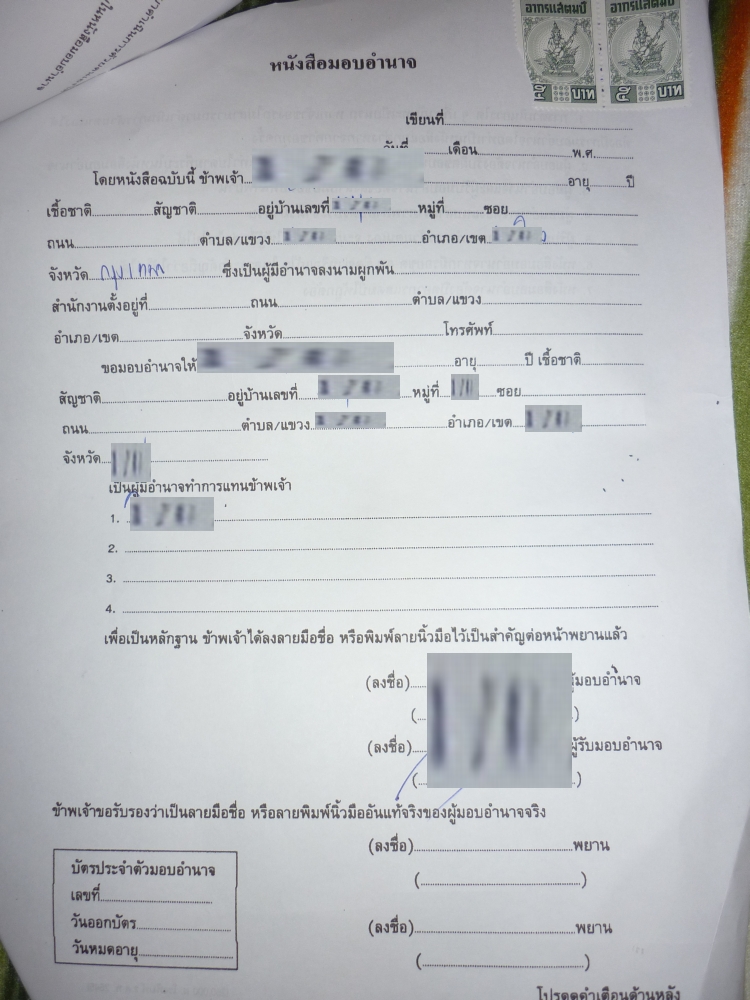 อากรแสตมป์ อากรแสตมป์
บาท ๕ บาท
หนังสือมอบอำนาจ
เขียนที่
วันที่ เดือน พ.ศ.
โดยหนังสือฉบับนี้ ข้าพเจ้า อายุ ปี
เชื้อชาติ สัญชาติ อยู่บ้านเลขที่ หมู่ที่ ซอย
ถนน ตำบล/แขวง อำเภอ/เขต
จังหวัด ซึ่งเป็นผู้มีอำนาจลงนามผูกพัน
สำนักงานตั้งอยู่ที่ ถนน ตำบล/แขวง
อำเภอ/เขต จังหวัด โทรศัพท์
ขอมอบอำนาจให้ อายุ ปี เชื้อชาติ
สัญชาติ อยู่บ้านเลขที่ หมู่ที่ ซอย
ถนน ตำบล/แขวง อำเภอ/เขต
จังหวัด
เป็นผู้มีอำนาจทำการแทนข้าพเจ้า
1.
2.
3.
4.
เพื่อเป็นหลักฐาน ข้าพเจ้าได้ลงลายมือชื่อ หรือพิมพ์ลายนิ้วมือไว้เป็นสำคัญต่อหน้าพยานแล้ว
(ลงชื่อ) ผู้มอบอำนาจ
( )
(ลงชื่อ) ผู้รับมอบอำนาจ
( )
ข้าพเจ้าขอรับรองว่าเป็นลายมือชื่อ หรือลายพิมพ์นิ้วมืออันแท้จริงของผู้มอบอำนาจจริง
(ลงชื่อ) พยาน
( )
(ลงชื่อ) พยาน
( )
บัตรประจำตัวมอบอำนาจ
เลขที่
วันออกบัตร
วันหมดอายุ
โปรดดูคำเตือนด้านหลัง